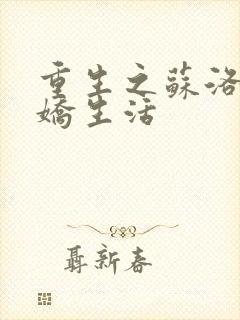 重生之蘇洛
嬌生活
聶新春